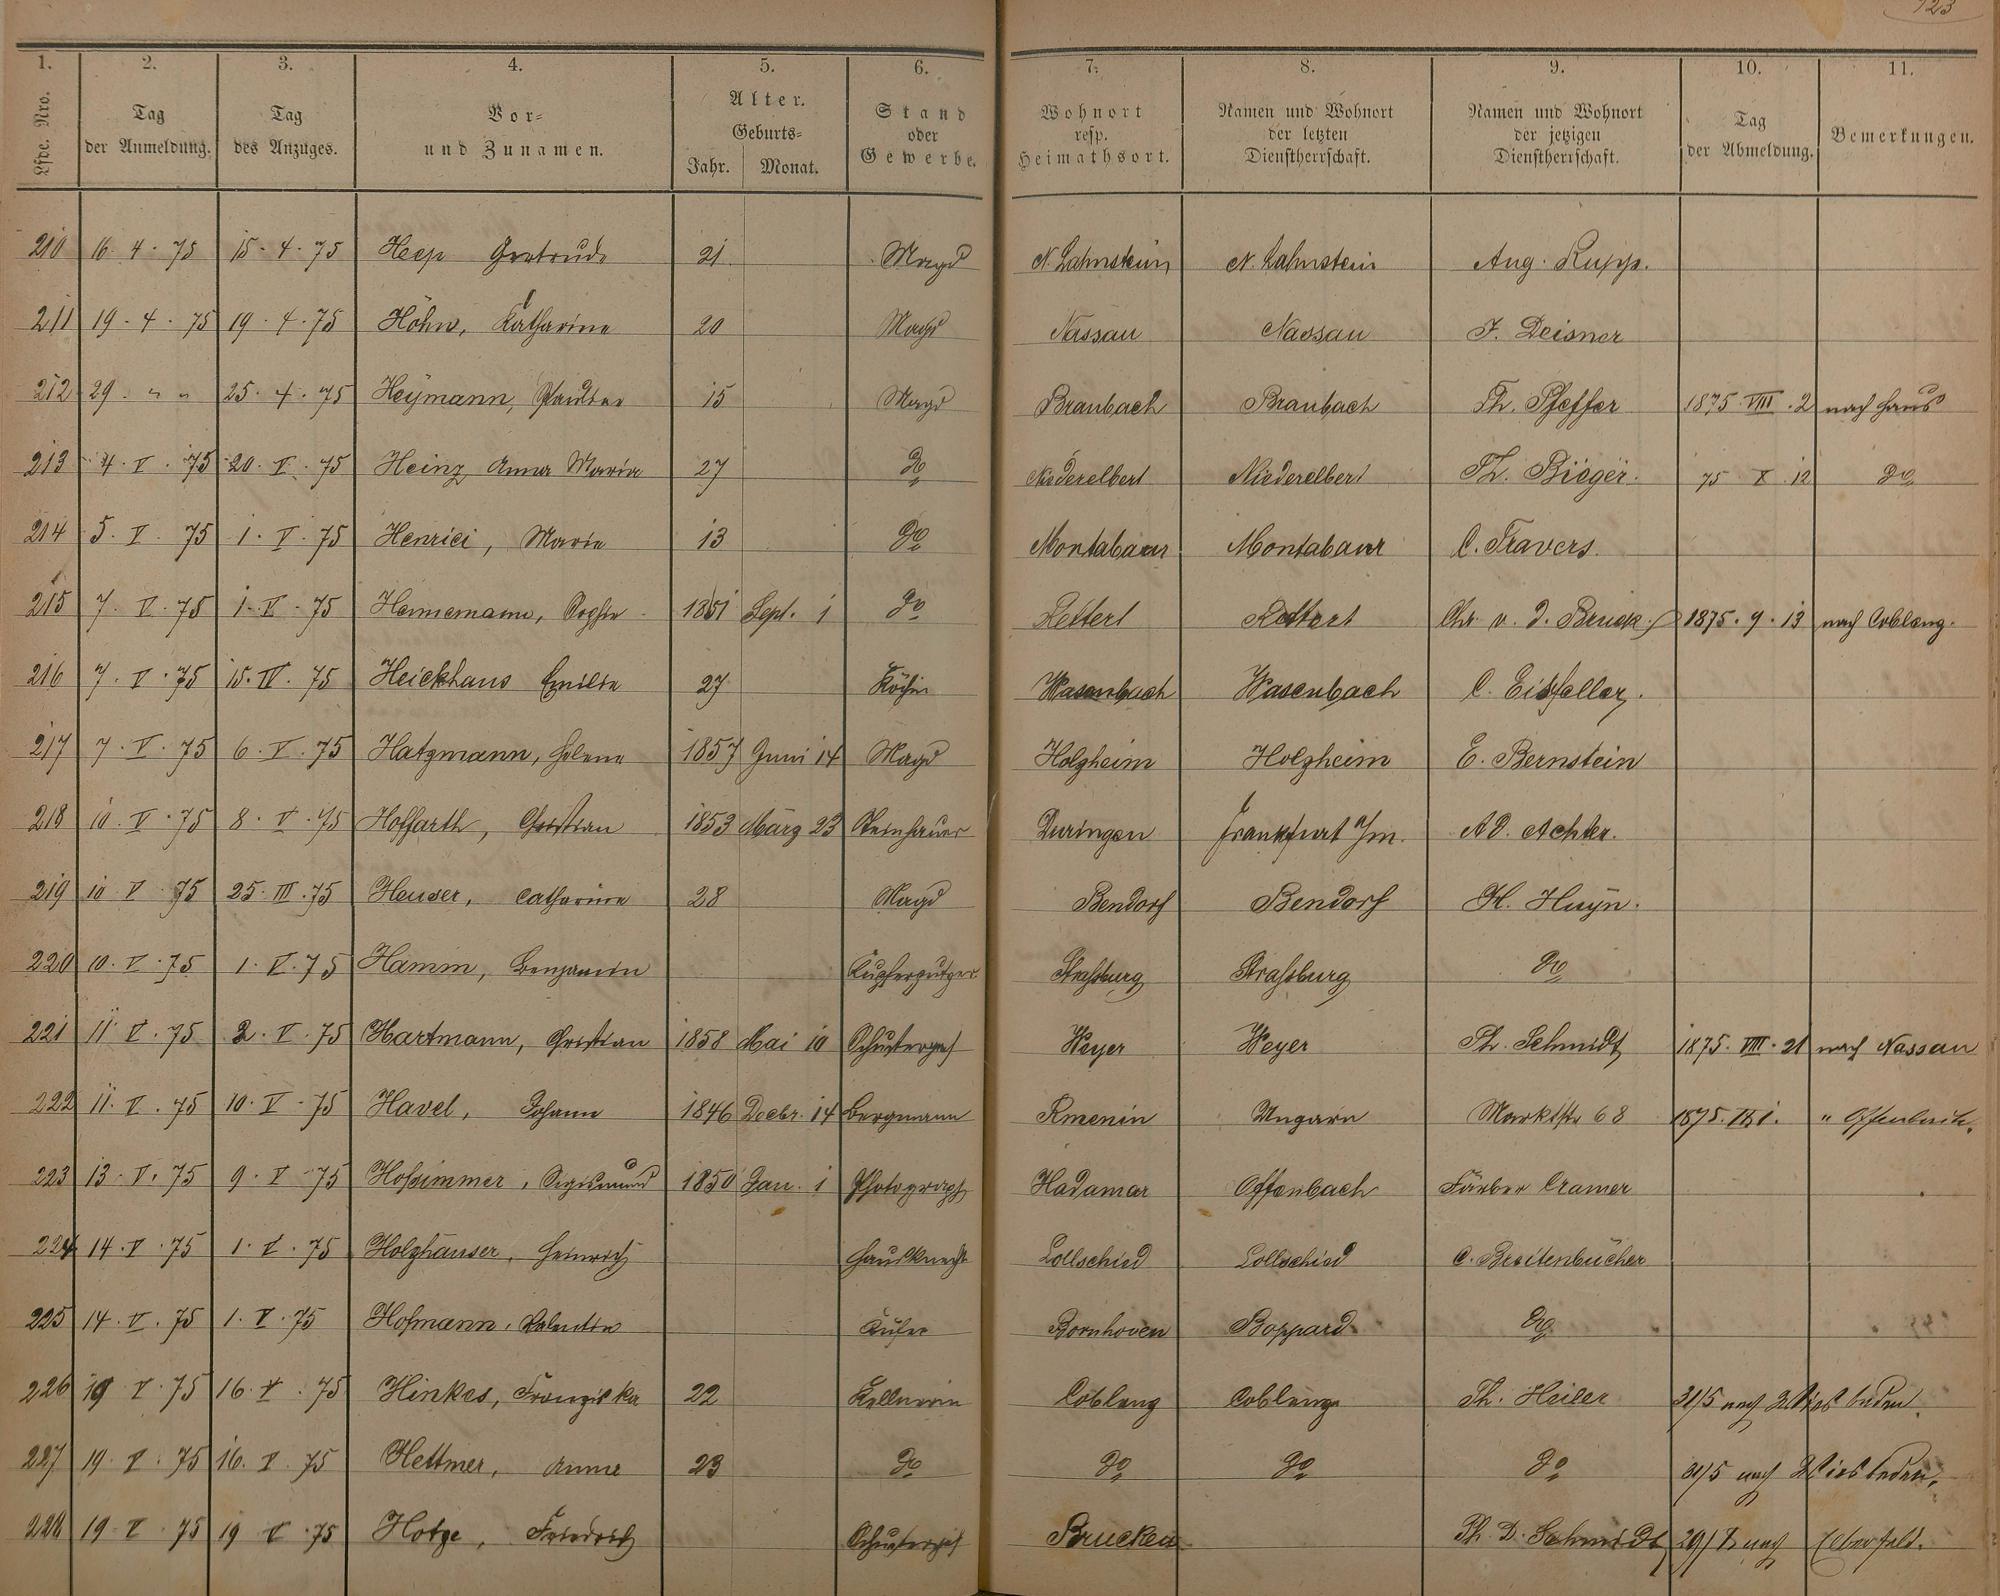 123
1. 2. 3. 4. 5. 6. 7. 8. 9. 10. 11.
Lfde. Nro. Tag der Anmeldung. Tag des Anzuges. Vor- und Zunamen. Alter. Geburts- Jahr. Monat. Stand oder Gewerbe. Wohnort resp. Heimathsort. Namen und Wohnort der letzten Dienstherrschaft. Namen und Wohnort der jetzigen Dienstherrschaft. Tag der Abmeldung. Bemerkungen.
210 16. 4. 75 15. 4. 75 Heep Gertrude 21 Magd N. Lahnstein N. Lahnstein Aug. Rupp.
211 19. 4. 75 19. 4. 75 Höhn, Katharine 20 Magd Nassau Nassau J. Deisner
212 29. " " 25. 4. 75 Heymann, 15 Magd Braubach Braubach Th. Pfeffer 1875. VIII. 2 nach Haus
213 4. V. 75 20. V. 75 Heinz, Anna Maria 27 do Niederelbert Niederelbert Th. Bieger. 75 X 12 do
214 5. V. 75 1. V. 75 Henrici, Marie 13 do Montabaur Montabaur C. Travers.
215 7. V. 75 1. V. 75 Hennemann, Sophie 1851 Sept. 1 do Rettert Rettert Chr. v. d. Bruck. 1875. 9. 13 nach Coblenz.
216 7. V. 75 15. IV. 75 Heickhaus Emilie 27 Köchin Wasenbach Wasenbach C. Eisfeller.
217 7. V. 75 6. V. 75 Hatzmann, Helene 1857 Juni 14 Magd Holzheim Holzheim E. Bernstein
218 10. V. 75 8. V. 75 Hoffarth, Christian 1853 März 23 Steinhauer Duringen Frankfurt a/m. Ad. Achter.
219 10 V 75 25. III. 75 Heuser, Catharine 28 Magd Bendorf Bendorf H. Huyn.
220 10. V. 75 1. V. 75 Hamm, Benjamin Kupferputzer Straßburg Straßburg do
221 11 V. 75 2. V. 75 Hartmann, Christian 1858 Mai 10 Schustergef Weyer Weyer Ph. Schmidt 1875. VIII. 21 nach Nassau
222 11. V. 75 10. V. 75 Havel, Johann 1846 Decbr. 14 Bergmann Kmenin Ungarn Marktstr 68 1875. " Offenbach.
223 13. V. 75 9. V. 75 Hoßimmer, Sigismund 1850 Jan. 1 Photograph Hadamar Offenbach Färber Cramer
224 14. V. 75 1. V. 75 Holzhäuser, Heinrich Hausknecht Lollschied Lollschied C. Breitenbücher
225 14. V. 75 1. V. 75 Hofmann, Valentin Küfer Bornhoven Boppard do
226 19 V. 75 16. V. 75 Hinkes, Franziska 22 Kellnerin Coblenz Coblenz Th. Heiler 31/5 nach Wiesbaden.
227 19. V. 75 16. V. 75 Hettmer, Anna 23 do do do do 31/5 nach Wiesbaden.
228 19 V 75 19 V. 75 Hotze, Friedrich Schustergef Brucken Ph. D. Schmidt nach Elberfeld.